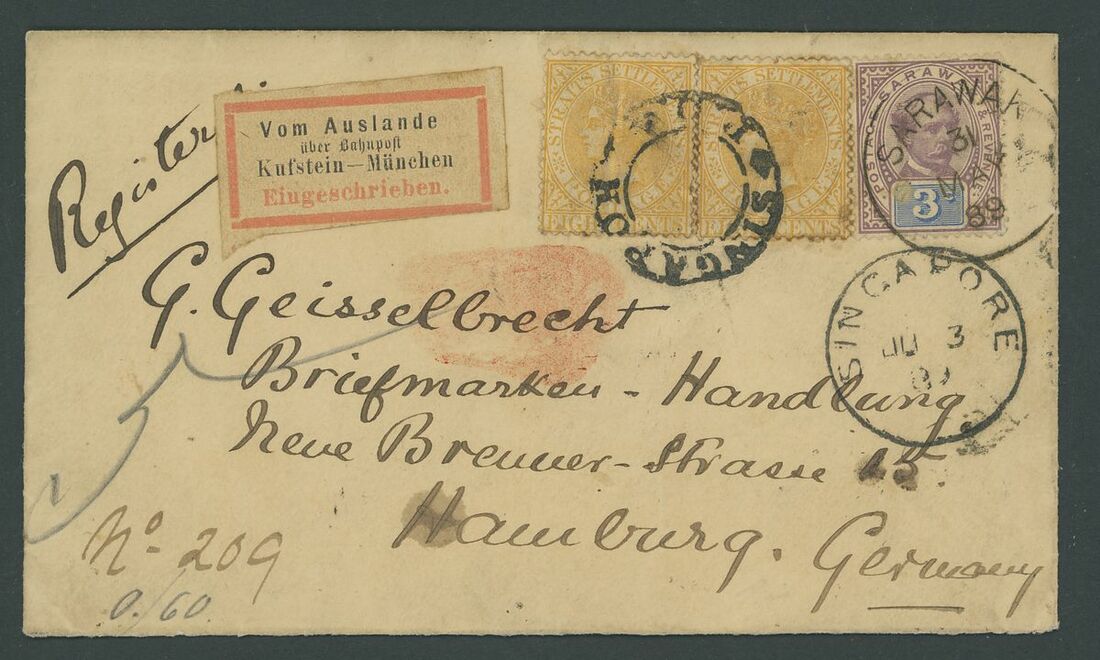 Vom Auslande
über Bahnpost
Kufstein—München
Eingeschrieben.
STRAITS SETTLEMENTS
POSTAGE
EIGHT CENTS
STRAITS SETTLEMENTS
POSTAGE
CENTS
SARAWAK
POSTAGE & REVENUE
3
SARAWAK
31
MAY
89
SINGAPORE
JU 3
89
G. Geisselbrecht
Briefmarken - Handlung
Neue Brenner-Strasse 15.
Hamburg. Germany
No 209
0./60